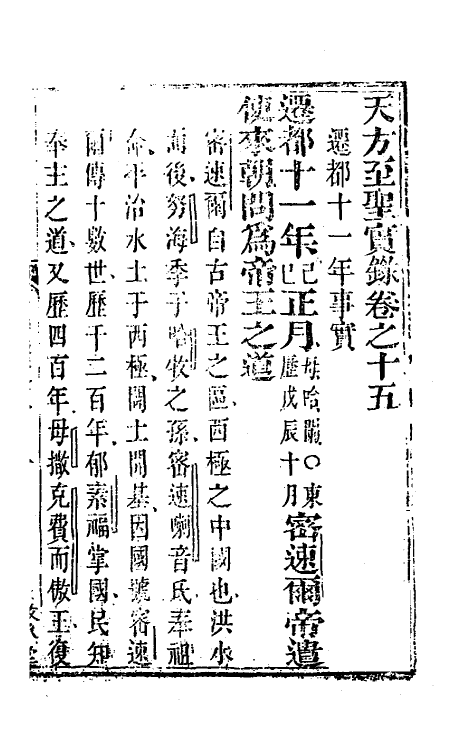 天方至聖實錄卷之十五
遷都十一年事實
遷都十一年己巳正月母哈闌〇東歷戊辰十月密速爾帝遣
使來朝問爲帝王之道
密速爾自古帝王之區西極之中國也洪水
previous後努海季子哈牧之孫密速喇音氏奉祖
命平治水土于西極闢土開基因國號密速
爾傳十數世歷千二百年郁素福掌國民知
奉主之道又歷四百年母撒克費而傲王復